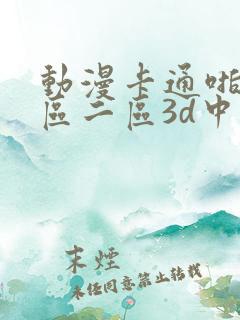 動漫卡通啪
區二區3d中
末煙
未經同意禁止轉載